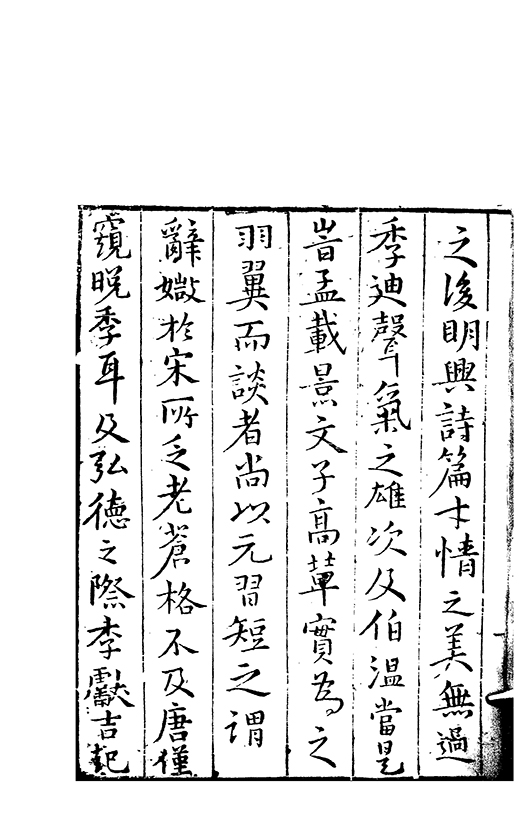 之後明興詩篇才情之美無過
季迪聲氣之雄次及伯溫當是
旹孟載景文子高輩實為之
羽翼而談者尚以元習短之謂
辭媺於宋所乏老蒼格不及唐僅
窺晚季耳及弘德之際李獻吉起